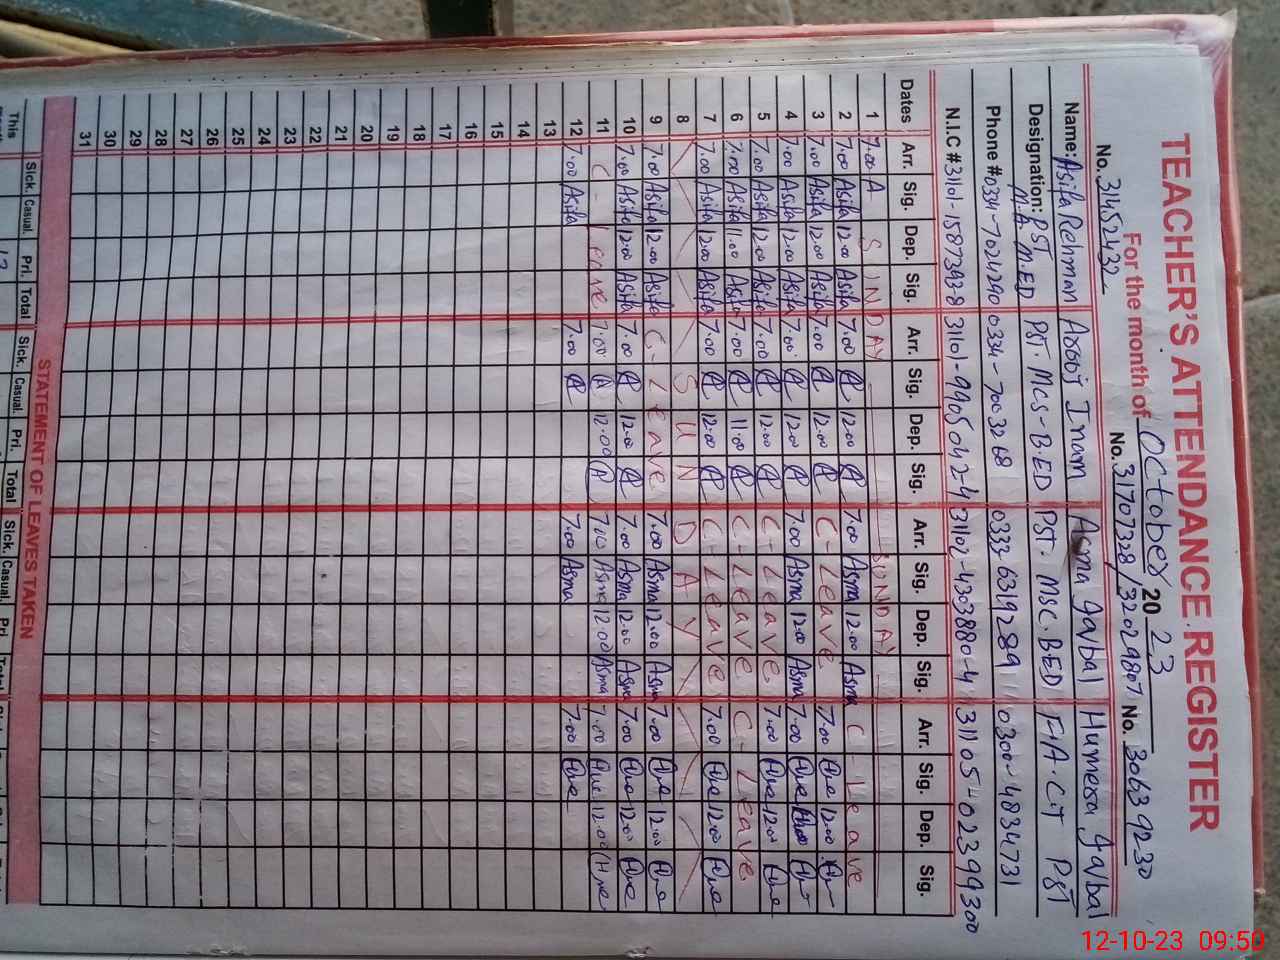 TEACHER'S ATTENDANCE REGISTER
For the month of October 20 23
No. 31452432 No. 31707328/32029807 No. 30639230
Name: Asifa Rehman Asma Jalbal Humera Jalbal
Designation: PST M.A. M.ED PST. MCS-B.ED PST. MSC.BED F/A.CT PST
Phone # 0334-7024290 0334-7003268 0333-6319289 0300-4834731
N.I.C # 31101-1587393-8 31101-9905042-4 31102-4303880-4 31105-02399300
Dates Arr. Sig. Dep. Sig. Arr. Sig. Dep. Sig. Arr. Sig. Dep. Sig. Arr. Sig. Dep. Sig.
1 7.00 A SUNDAY SUNDAY
2 7.00 Asifa 12.00 Asifa 7.00 12.00 7.00 Asma 12.00 Asma C-Leave
3 7.00 Asifa 12.00 Asifa 7.00 12.00 C-Leave 7.00 12.00
4 7.00 Asifa 12.00 Asifa 7.00 12.00 7.00 Asma 12.00 Asma 7.00
5 7.00 Asifa 12.00 Asifa 7.00 12.00 C-Leave 7.00 12.00
6 7.00 Asifa 11.00 Asifa 7.00 11.00 C-Leave C-Leave
7 7.00 Asifa 12.00 Asifa 7.00 12.00 C-Leave 7.00 12.00
8 SUNDAY
9 7.00 Asifa 12.00 Asifa C-Leave 7.00 Asma 12.00 Asma 7.00 12.00
10 7.00 Asifa 12.00 Asifa 7.00 12.00 7.00 Asma 12.00 Asma 7.00 12.00
11 C-Leave 7.00 A 12.00 A 7.00 Asma 12.00 Asma 7.00 12.00
12 7.00 Asifa 7.00 7.00 Asma 7.00
13
14
15
16
17
18
19
20
21
22
23
24
25
26
27
28
29
30
31
STATEMENT OF LEAVES TAKEN
This Sick. Casual. Pri. Total Sick. Casual. Pri. Total Sick. Casual. Pri Total
12-10-23 09:50